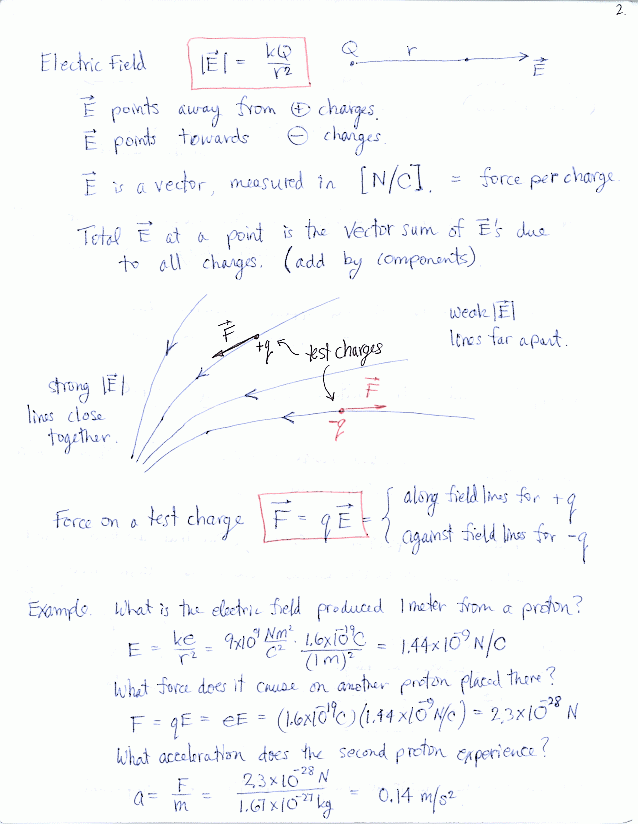 2.
Electric Field |E⃗| = kQ/r² Q r E⃗
E⃗ points away from ⊕ charges.
E⃗ points towards ⊖ charges.
E⃗ is a vector, measured in [N/C]. = force per charge.
Total E⃗ at a point is the vector sum of E⃗'s due
to all charges. (add by components)
weak |E⃗|
lines far apart.
F⃗
+q test charges
strong |E⃗|
lines close
together.
F⃗
-q
Force on a test charge F⃗ = qE⃗ = { along field lines for +q
against field lines for -q
Example. What is the electric field produced 1 meter from a proton?
E = ke/r² = 9x10⁹ Nm²/C² · 1.6x10⁻¹⁹C/(1m)² = 1.44x10⁻⁹ N/C
What force does it cause on another proton placed there?
F = qE = eE = (1.6x10⁻¹⁹C)(1.44x10⁻⁹N/C) = 2.3x10⁻²⁸ N
What acceleration does the second proton experience?
a = F/m = 2.3x10⁻²⁸ N/1.67x10⁻²⁷ kg = 0.14 m/s²